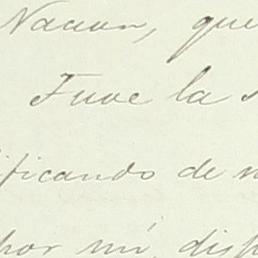 Nacion, que
Tuve la s
ificando de n
por mí, disp